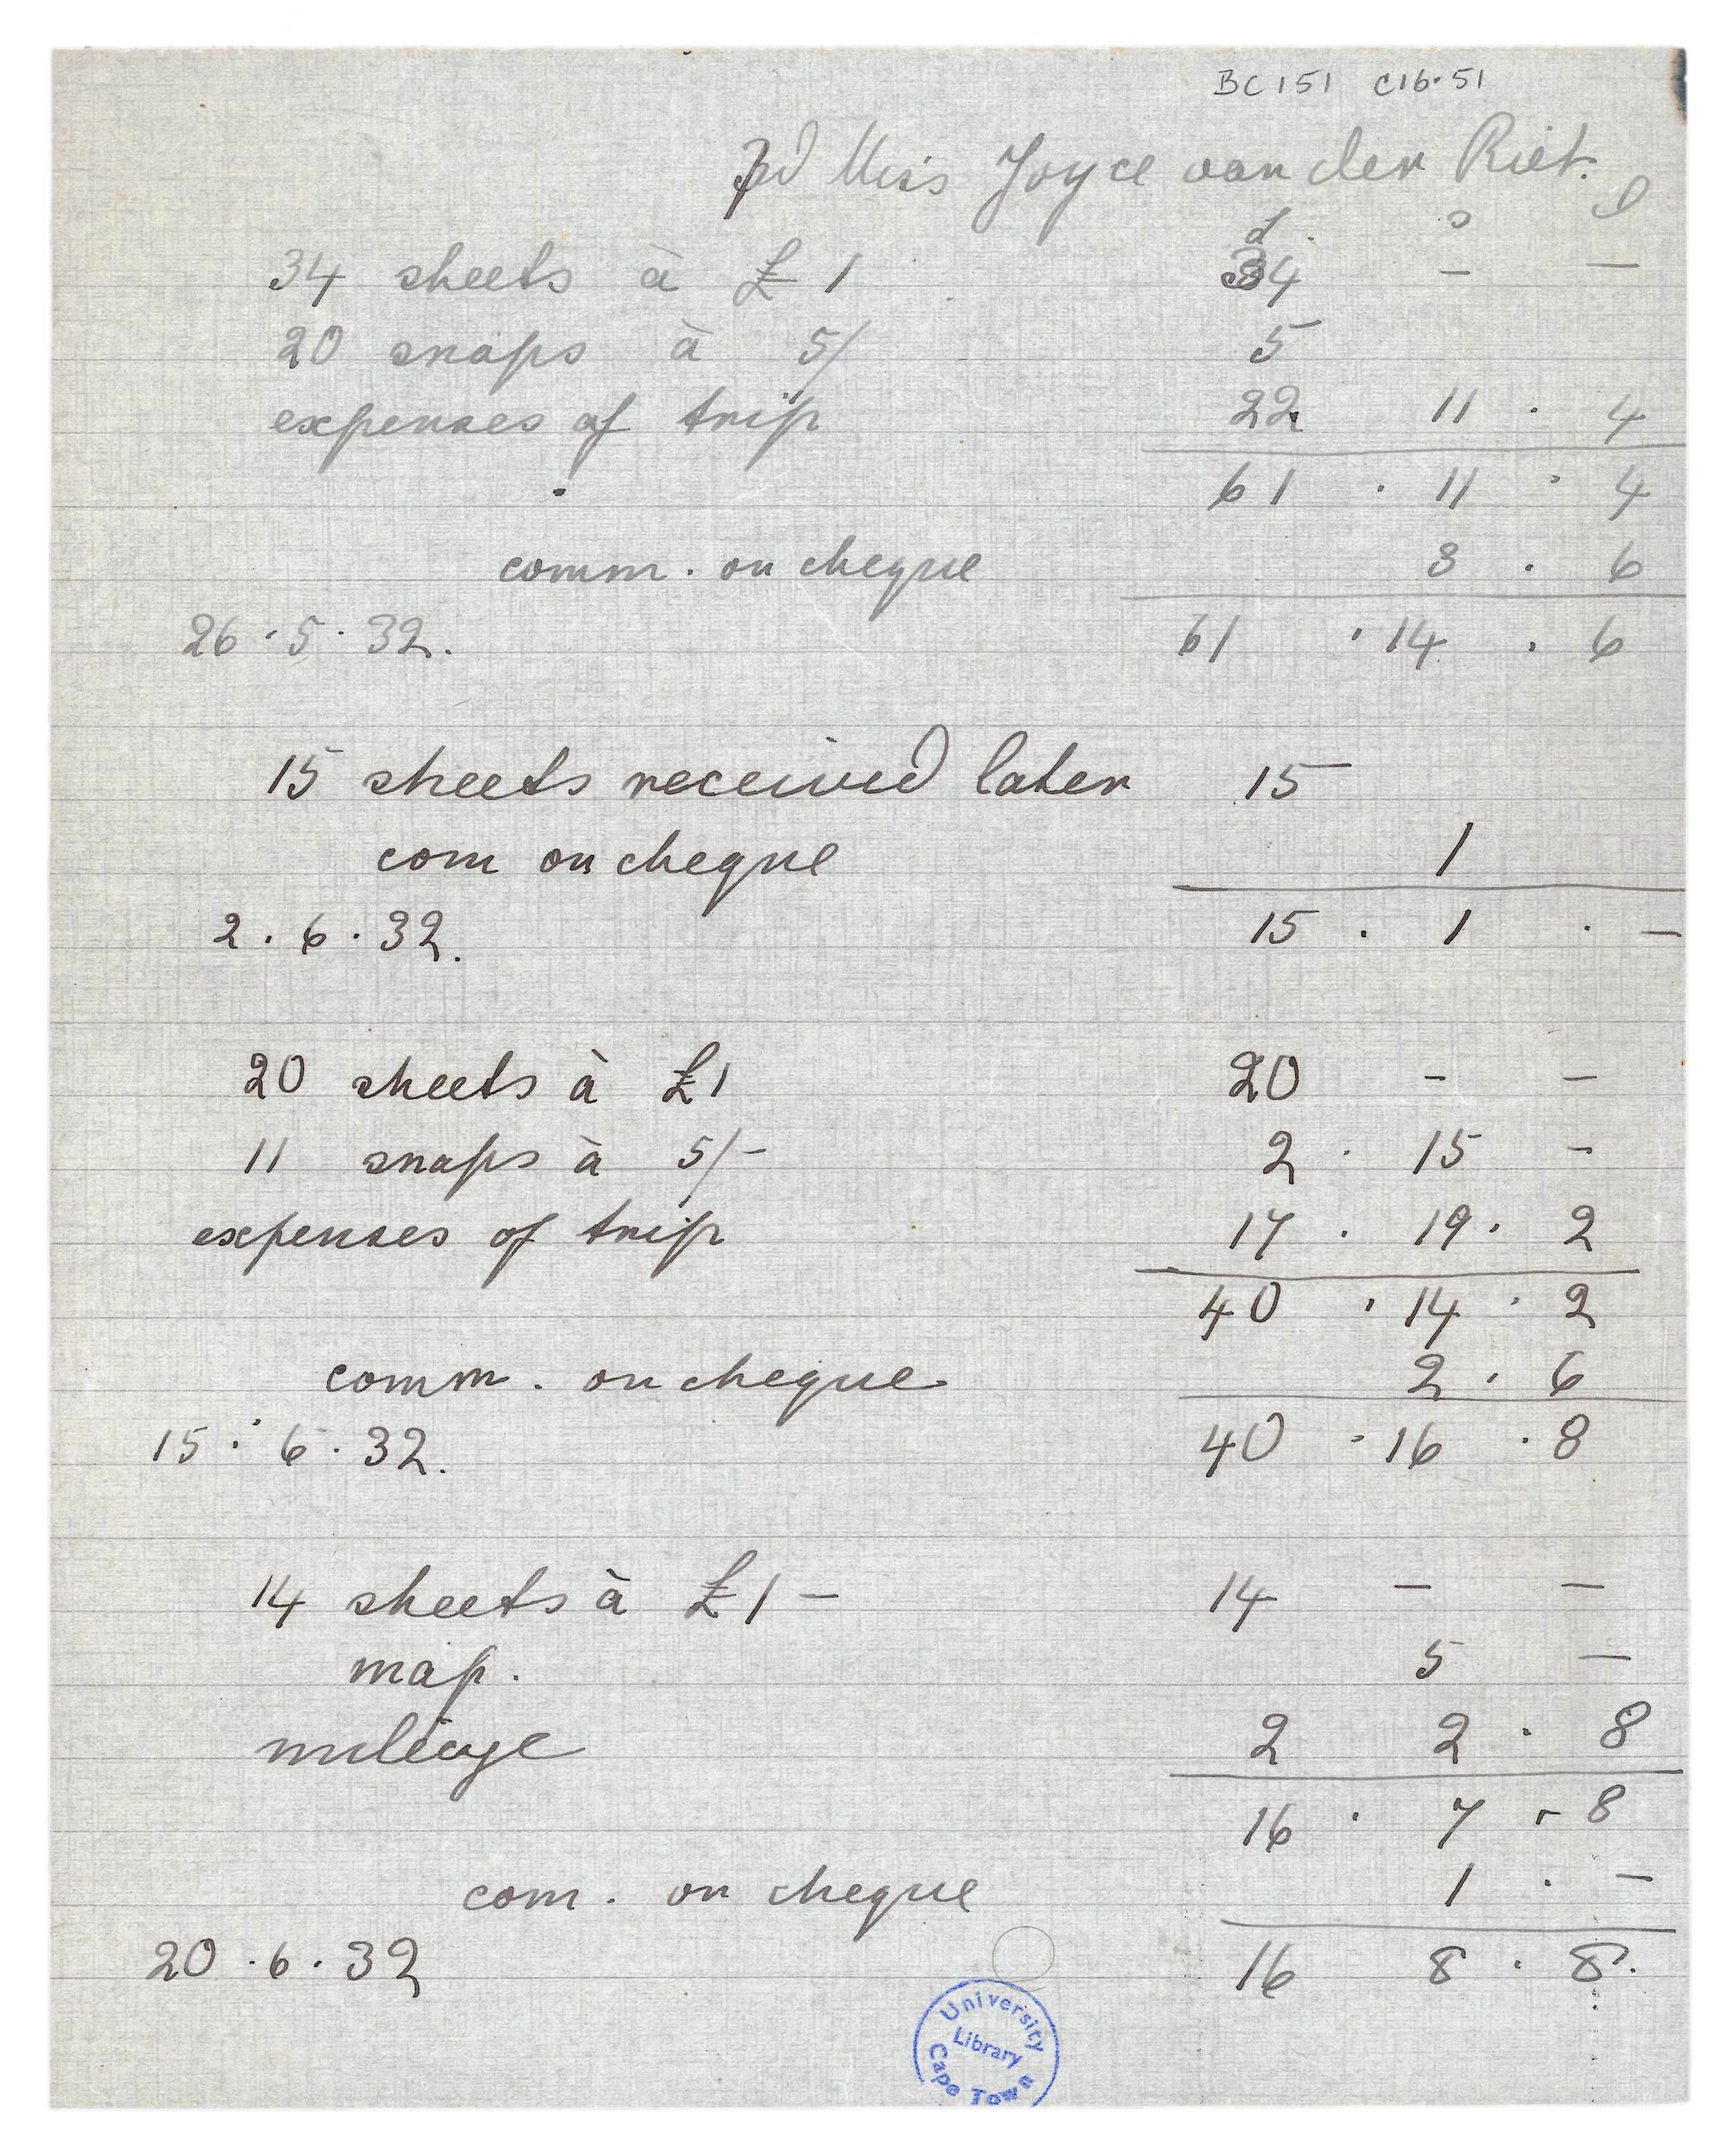 BC 151 C16.51
pd Miss Joyce van der Riet.
£ s d
34 sheets à £ 1 34 — —
20 snaps à 5/ 5
expenses of trip 22 11 . 4
61 . 11 . 4
comm. on cheque 3 . 6
26 . 5 . 32. 61 . 14 . 6
15 sheets received later 15
com on cheque 1
2 . 6 . 32. 15 . 1 . —
20 sheets à £1 20 - —
11 snaps à 5/- 2 . 15 -
expenses of trip 17 . 19 . 2
40 . 14 . 2
comm. on cheque 2 . 6
15 . 6 . 32. 40 . 16 . 8
14 sheets à £1 — 14 — —
map. 5 —
mileage 2 2 . 8
16 . 7 . 8
com. on cheque 1 . —
20 . 6 . 32 16 8 . 8.
University
Library
Cape Town